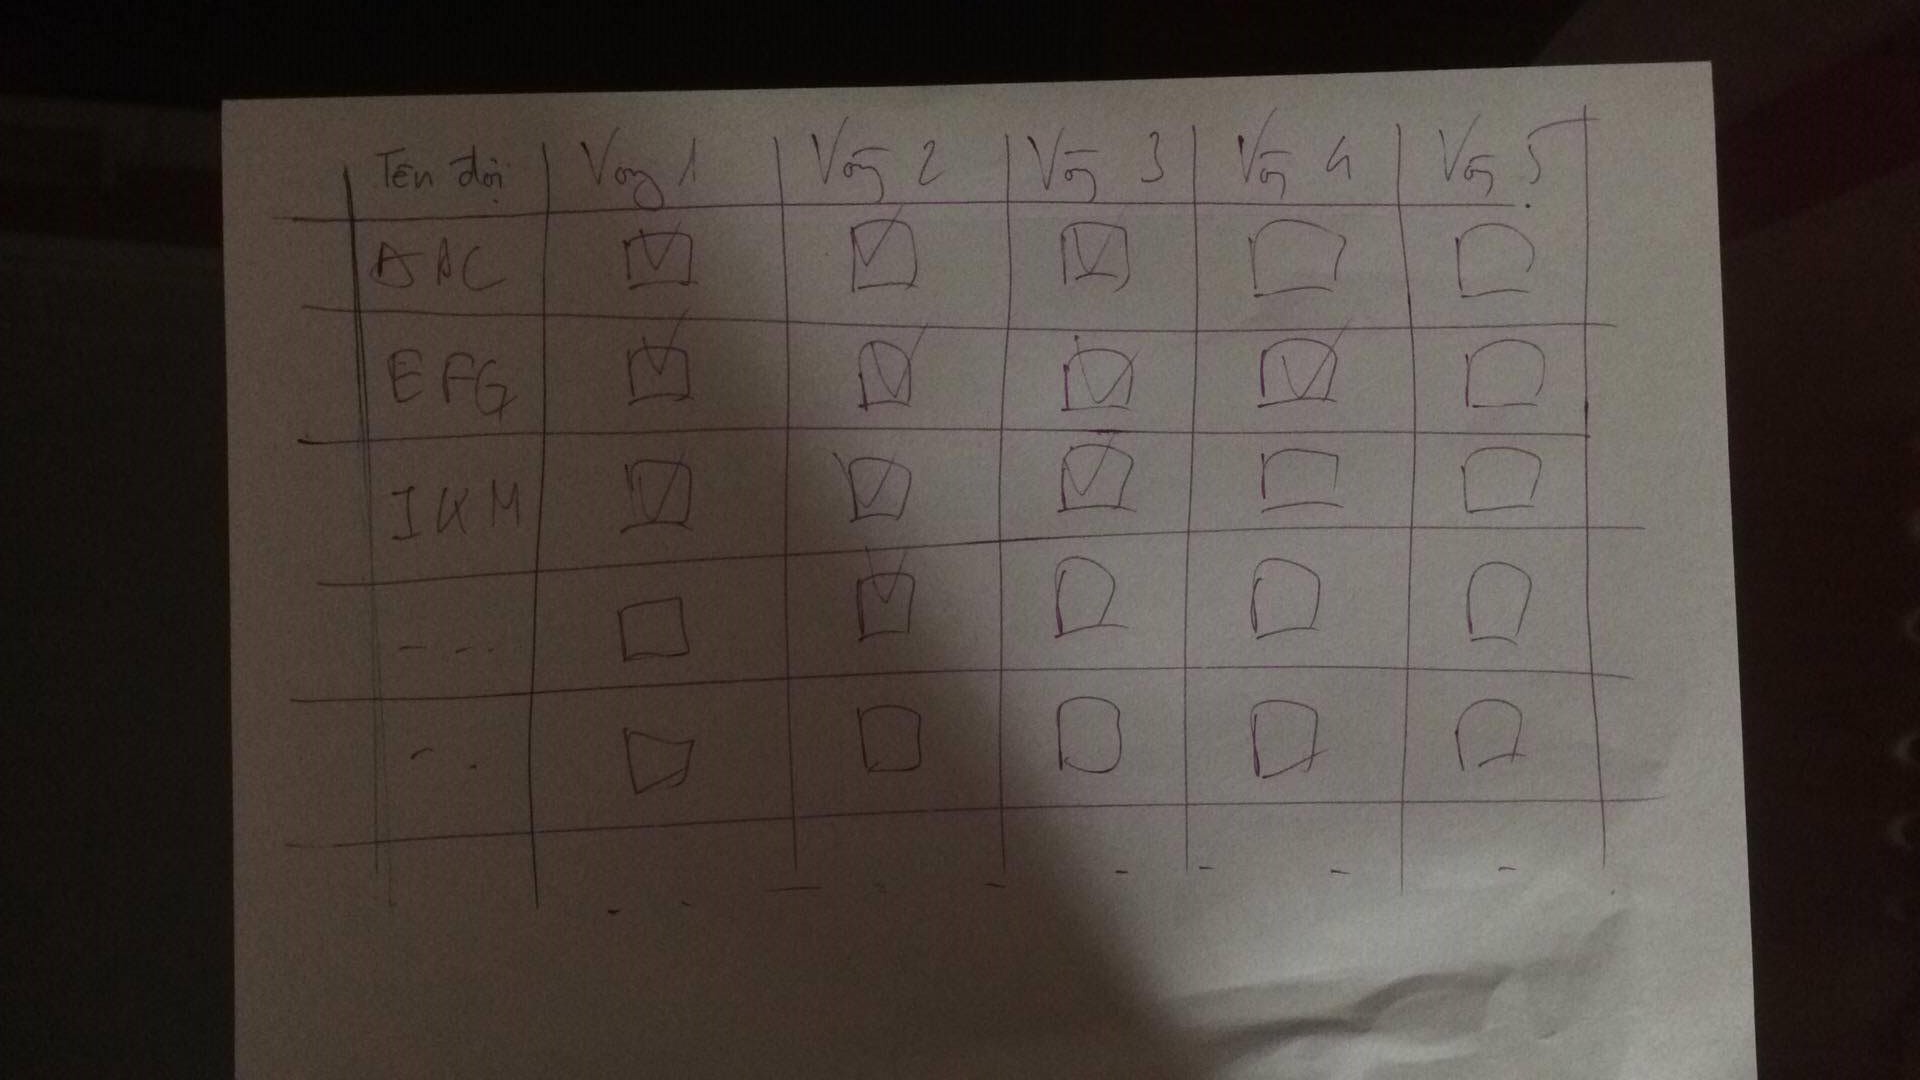 Tên đội Vòng 1 Vòng 2 Vòng 3 Vòng 4 Vòng 5
AAC
EFG
IKM